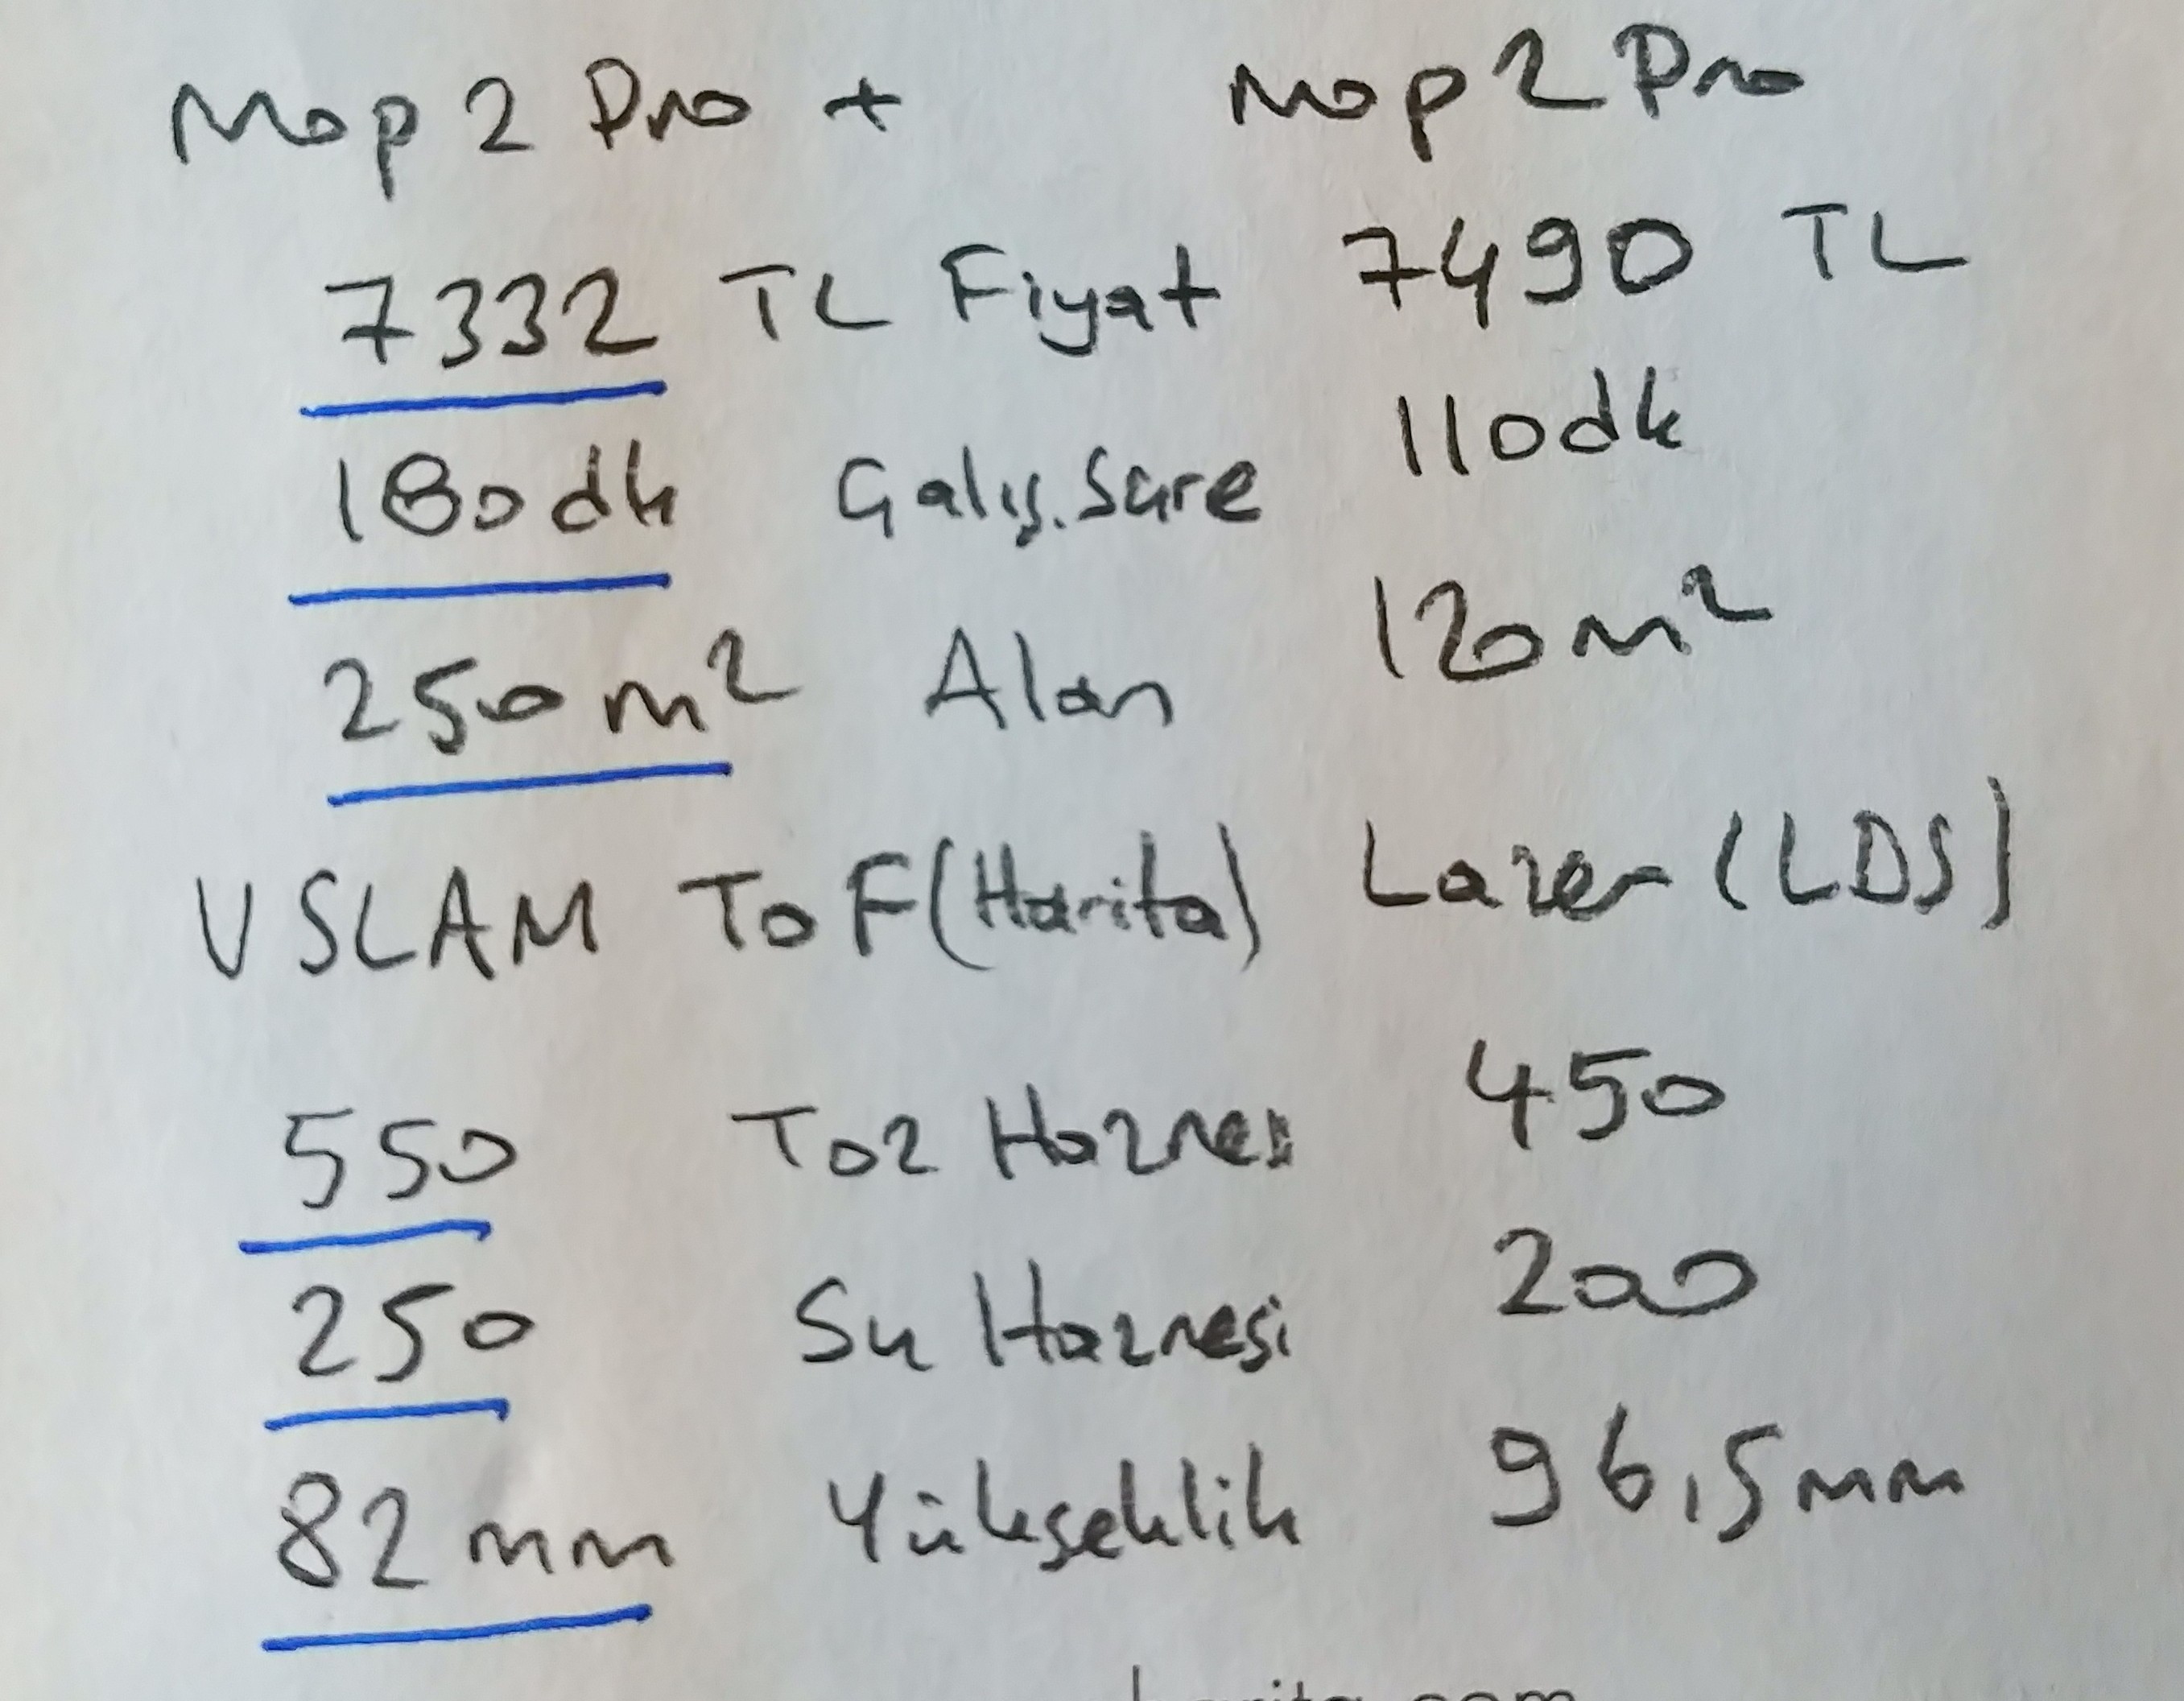 Mop 2 Pro + Mop 2 Pro
7332 TL Fiyat 7490 TL
180dk Çalış. Süre 110dk
250 m² Alan 120m²
VSLAM ToF (Harita) Lazer (LDS)
550 Toz Haznesi 450
250 Su Haznesi 200
82 mm Yükseklik 96,5mm